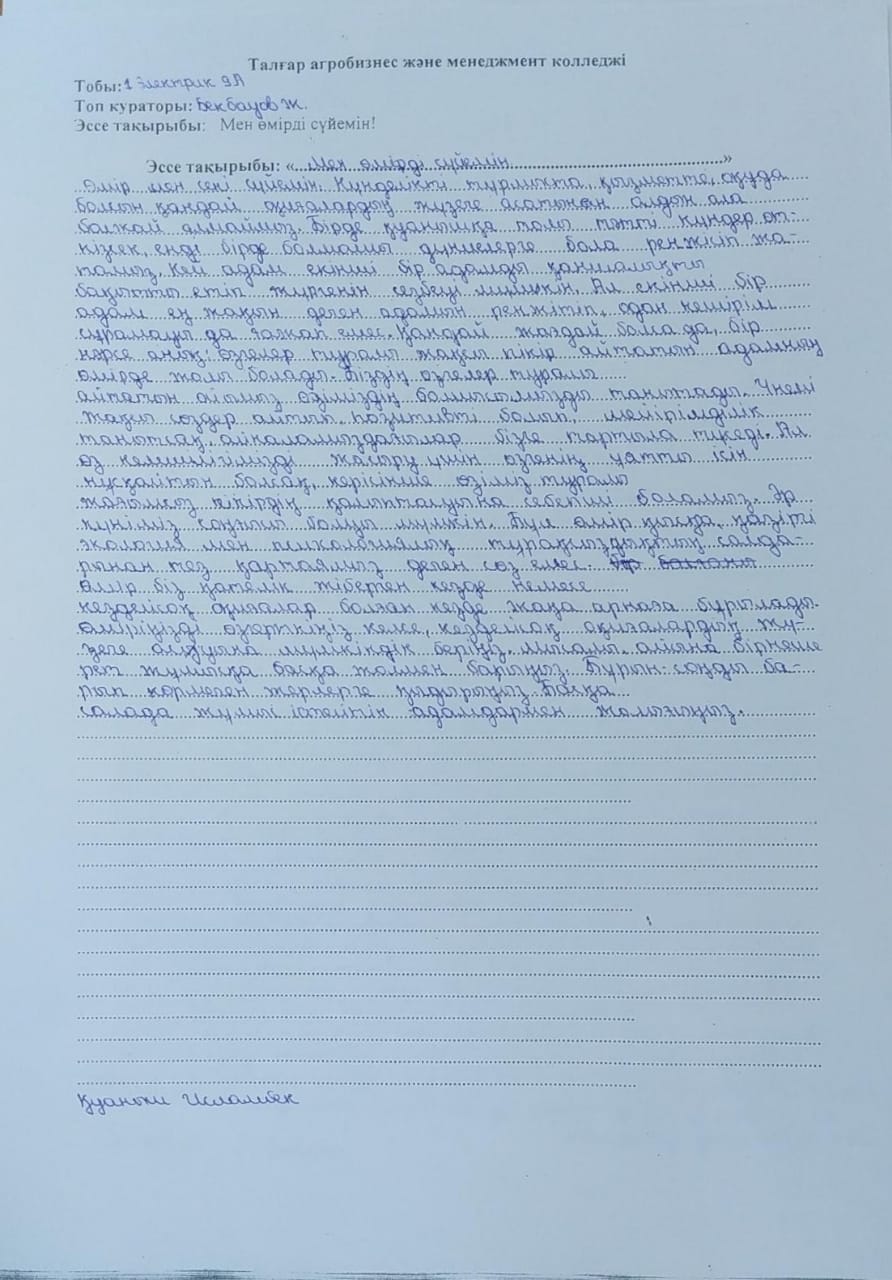 Талғар агробизнес және менеджмент колледжі
Тобы: 1 Электрик 9А
Топ кураторы: Бекбауов Ж.
Эссе тақырыбы: Мен өмірді сүйемін!
Эссе тақырыбы: «Мен өмірді сүйемін»
Өмір мен сені сүйемін. Күнделікті тұрмыста, қызметте, оқуда
болсын қандай оқиғалардың жүзеге асатынын алдын ала
болжай алмаймыз. Бірде қуанышқа толы тәтті күндер өт-
кізсек, енді бірде болмашы дүниелерге бола ренжісіп жа-
тамыз. Кей адам екінші бір адамды қаншалықты
бақытты етіп жүргенін сезбеуі мүмкін. Ал екінші бір
адам ең жақын деген адамын ренжітіп, одан кешірім
сұрамауы да ғажап емес. Қандай жағдай болса да, бір
нәрсе анық: өзгелер туралы жақсы пікір айтатын адамның
өмірде жолы болады. Біздің өзгелер туралы
айтатын ойымыз өзіміздің болмысымызды танытады. Үнемі
жақсы сөздер айтып, позитивті болып, мейірімділік
танытсақ, айналамыздағылар бізге тартыла түседі. Ал
өз кемшілігімізді жасыру үшін өзгенің ұятты ісін
нұсқайтын болсақ, керісінше өзіміз туралы
жағымсыз пікірдің қалыптасуына себепші боламыз. Әр
күніміз соңғысы болуы мүмкін. Бұл өмір қысқа, қазіргі
экология мен психологиялық тұрақсыздықтың салда-
рынан тез қартаямыз деген сөз емес.
Өмір біз қателік жіберген кезде немесе
кездейсоқ оқиғалар болған кезде жаңа арнаға бұрылады.
Өміріңізді өзерткіңіз келсе, кездейсоқ оқиғалардың жү-
зеге асуына мүмкіндік беріңіз. Мысалы, айына бірнеше
рет жұмысқа басқа жолмен барыңыз. Бұрын-соңды ба-
рып көрмеген жерлерге қыдырыңыз. Басқа
салада жұмыс істейтін адамдармен жолығыңыз.
Қуаныш Исламбек